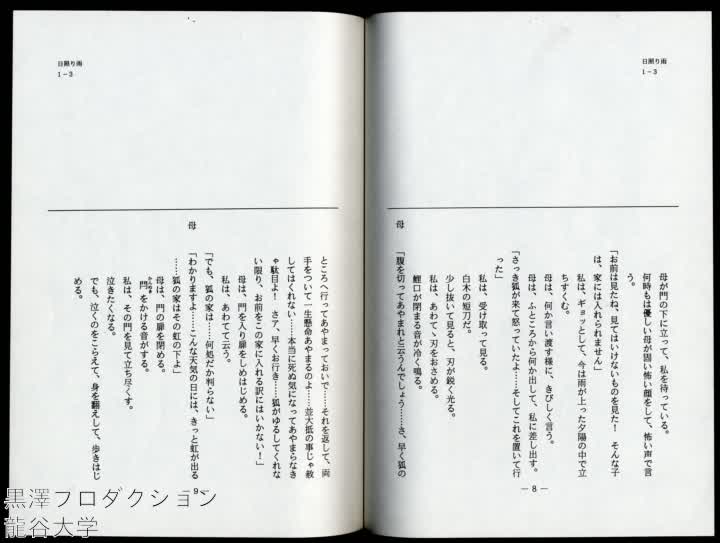 日照り雨
1－3
母が門の下に立って、私を待っている。
何時もは優しい母が固い怖い顔をして、怖い声で言
う。
「お前は見たね、見てはいけないものを見た！　そんな子
は、家には入れられません」
私は、ギョッとして、今は雨が上った夕陽の中で立
ちすくむ。
母は、何か言い渡す様に、きびしく言う。
「さっき狐が来て怒っていたよ……そしてこれを置いて行
った」
母は、ふところから何か出して、私に差し出す。
私は、受け取って見る。
白木の短刀だ。
少し抜いて見ると、刃が鋭く光る。
私は、あわてゝ刃をおさめる。
鯉口が閉まる音が冷く鳴る。
母
「腹を切ってあやまれと云うんでしょう……さ、早く狐の
― 8 ―
日照り雨
1－3
ところへ行ってあやまっておいで……それを返して、両
手をついて一生懸命あやまるのよ……並大抵の事じゃ赦
してはくれない……本当に死ぬ気になってあやまらなき
ゃ駄目よ！　さア、早くお行き……狐がゆるしてくれな
い限り、お前をこの家に入れる訳にはいかない！」
母は、門を入り扉をしめはじめる。
私は、あわてて云う。
「でも、狐の家は……何処だか判らない」
母
「わかりますよ……こんな天気の日には、きっと虹が出る
……狐の家はその虹の下よ」
母は、門の扉を閉める。
門をかける音がする。
私は、その門を見て立ち尽くす。
泣きたくなる。
でも、泣くのをこらえて、身を翻えして、歩きはじ
める。
― 9 ―
黒澤プロダクション
龍谷大学